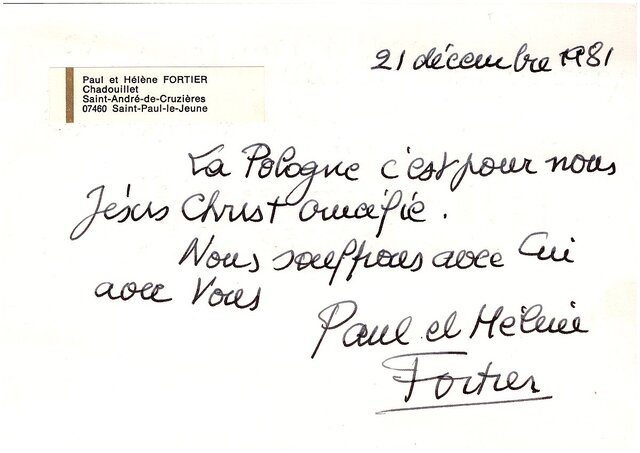 21 décembre 1981
Paul et Hélène FORTIER
Chadouillet
Saint-André-de-Cruzières
07460 Saint-Paul-le-Jeune
La Pologne c'est pour nous
Jésus Christ crucifié.
Nous souffrons avec Lui
avec Vous
Paul et Hélène
Fortier